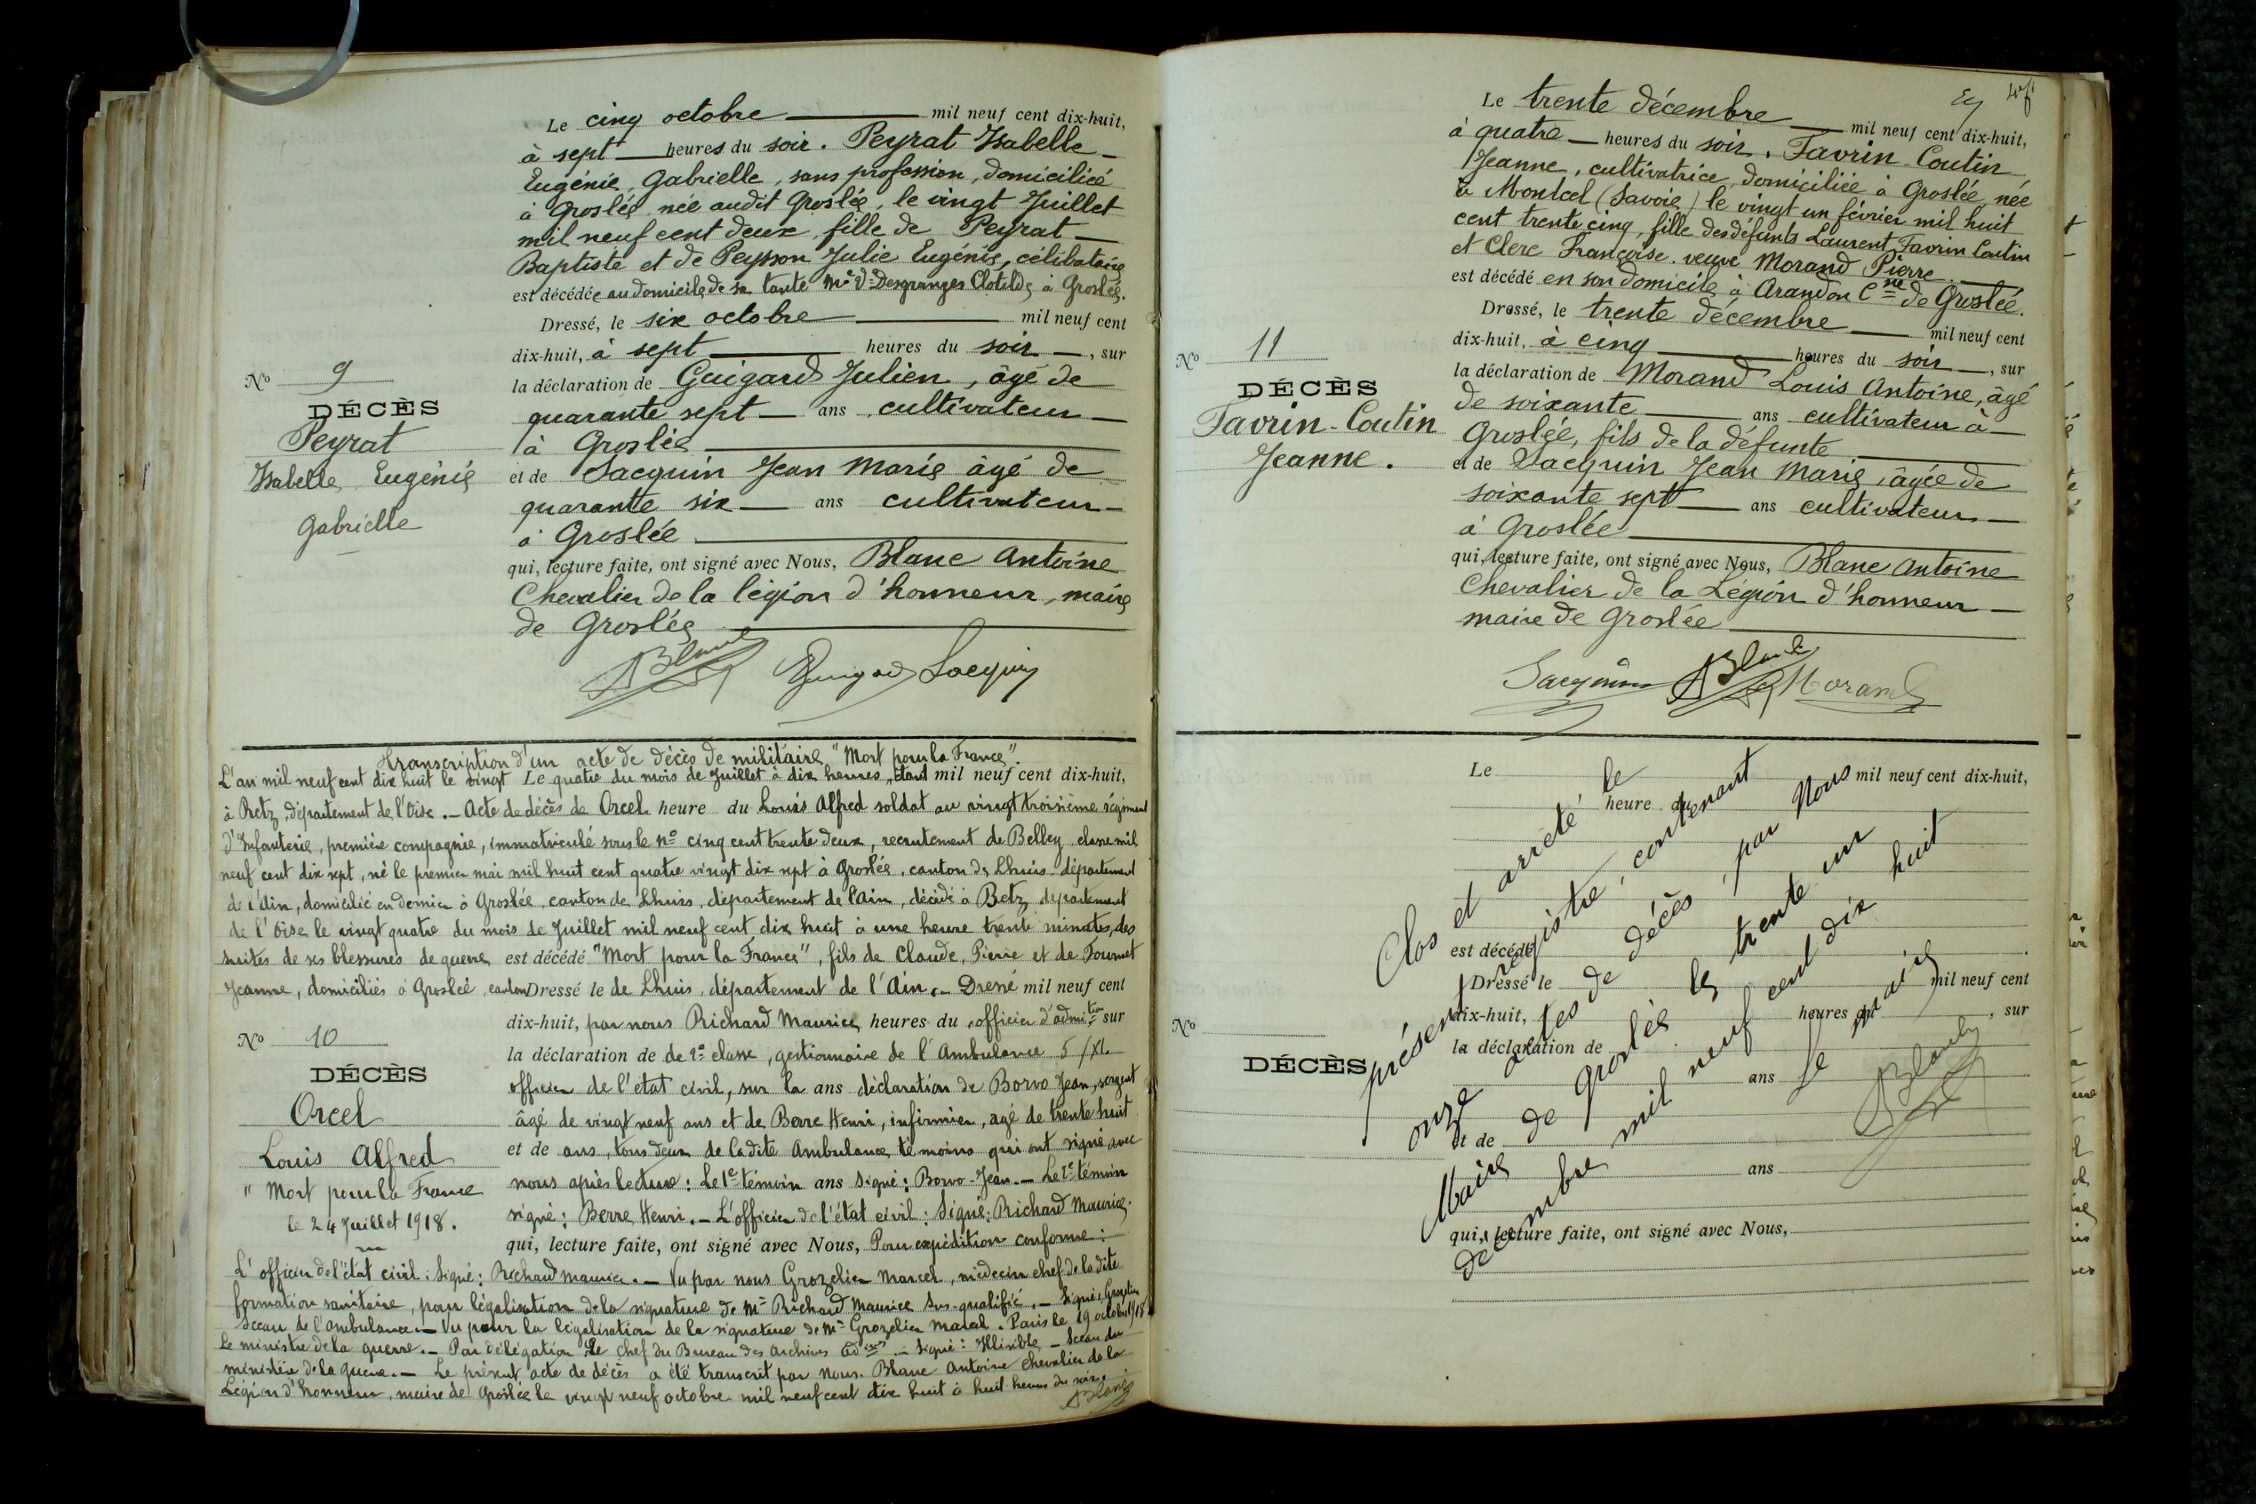 Le cinq octobre mil neuf cent dix-huit,
à sept heures du soir. Peyrat Isabelle
Eugénie, Gabrielle, sans profession, domiciliée
à Groslée née audit Groslée, le vingt Juillet
mil neuf cent deux fille de Peyrat
Baptiste et de Peysson Julie Eugénie, célibataire
est décédée au domicile de sa tante Me Ve Desgranges Clotilde à Groslée.
Dressé, le six octobre mil neuf cent
dix-huit, à sept heures du soir, sur
la déclaration de Guigard Julien, âgé de
quarante sept ans cultivateur
à Groslée
et de Sacquin Jean Marie âgé de
quarante six ans cultivateur
à Groslée
qui, lecture faite, ont signé avec Nous, Blanc Antoine
Chevalier de la légion d'honneur, maire
de Groslée
ABlanc Guigard Sacquin
No 9
DÉCÈS
Peyrat
Isabelle Eugénie
Gabrielle
Transcription d'un acte de décès de militaire "Mort pour la France".
L'an mil neuf cent dix huit le vingt Le quatre du mois de Juillet à dix heures, étant mil neuf cent dix-huit,
à Betz, département de l'Oise. - Acte de décès de Orcel heure du Louis Alfred soldat au vingt troisième régiment
d'Infanterie, première compagnie, immatriculé sous le no cinq cent trente deux, recrutement de Belley classe mil
neuf cent dix sept, né le premier mai mil huit cent quatre vingt dix sept à Groslée, canton de Lhuis département
de l'Ain, domicilié en dernier à Groslée canton de Lhuis, département de l'Ain, décédé à Betz département
de l'Oise le vingt quatre du mois de Juillet mil neuf cent dix huit à une heure trente minutes, des
suites de ses blessures de guerre est décédé "Mort pour la France", fils de Claude, Pierre et de Fournet
Jeanne, domiciliés à Groslée canton Dressé le de Lhuis, département de l'Ain. - Dressé mil neuf cent
dix-huit, par nous Richard Maurice heures du officier d'admtion sur
la déclaration de de 2e classe, gestionnaire de l'Ambulance 5/XI
officier de l'état civil, sur la ans déclaration de Borvo Jean, sergent
âgé de vingt neuf ans et de Berre Henri, infirmier, âgé de trente huit
et de ans, tous deux de la dite Ambulance témoins qui ont signé avec
nous après lecture: Le 1e témoin ans signé: Borvo Jean. - Le 2e témoin
signé: Berre Henri. - L'officier de l'état civil: Signé: Richard Maurice.
qui, lecture faite, ont signé avec Nous, Pour expédition conforme:
No 10
DÉCÈS
Orcel
Louis Alfred
"Mort pour la France
le 24 Juillet 1918.
L'officier de l'état civil: Signé: Richard Maurice. - Vu par nous Grozelier Marcel, médecin chef de la dite
formation sanitaire, pour légalisation de la signature de Mr Richard Maurice sus-qualifié. - Signé: Grozelier
Sceau de l'ambulance - Vu pour la légalisation de la signature de Mr Grozelier Marcel. Paris le 19 octobre 1918
Le ministre de la guerre. - Par délégation Le chef du Bureau des Archives - Signé: Illisible - Sceau du
ministère de la guerre. - Le présent acte de décès a été transcrit par nous. Blanc Antoine chevalier de la
Légion d'honneur, maire de Groslée le vingt neuf octobre mil neuf cent dix huit à huit heures du soir.
ABlanc
Le trente décembre mil neuf cent dix-huit,
à quatre heures du soir, Favrin-Coutin
Jeanne, cultivatrice, domiciliée à Groslée, née
à Montcel (Savoie) le vingt un février mil huit
cent trente cinq, fille des défunts Laurent Favrin Coutin
et Clerc Françoise. veuve Morand Pierre
est décédé en son domicile à Arandon Cne de Groslée.
Dressé, le trente décembre mil neuf cent
dix-huit, à cinq heures du soir, sur
la déclaration de Morand Louis Antoine, âgé
de soixante ans cultivateur à
Groslée, fils de la défunte
et de Sacquin Jean Marie, âgée de
soixante sept ans cultivateur
à Groslée
qui, lecture faite, ont signé avec Nous, Blanc Antoine
Chevalier de la Légion d'honneur
maire de Groslée
Sacquin ABlanc Morand
No 11
DÉCÈS
Favrin-Coutin
Jeanne.
Le mil neuf cent dix-huit,
heure du
est décédé
Dressé le mil neuf cent
dix-huit, heures du , sur
la déclaration de
ans
et de
ans
qui, lecture faite, ont signé avec Nous,
No
DÉCÈS
Clos et arrêté le
présent registre, contenant
onze actes de décès, par Nous
Maire de Groslée le trente un
décembre mil neuf cent dix huit
Le maire
ABlanc